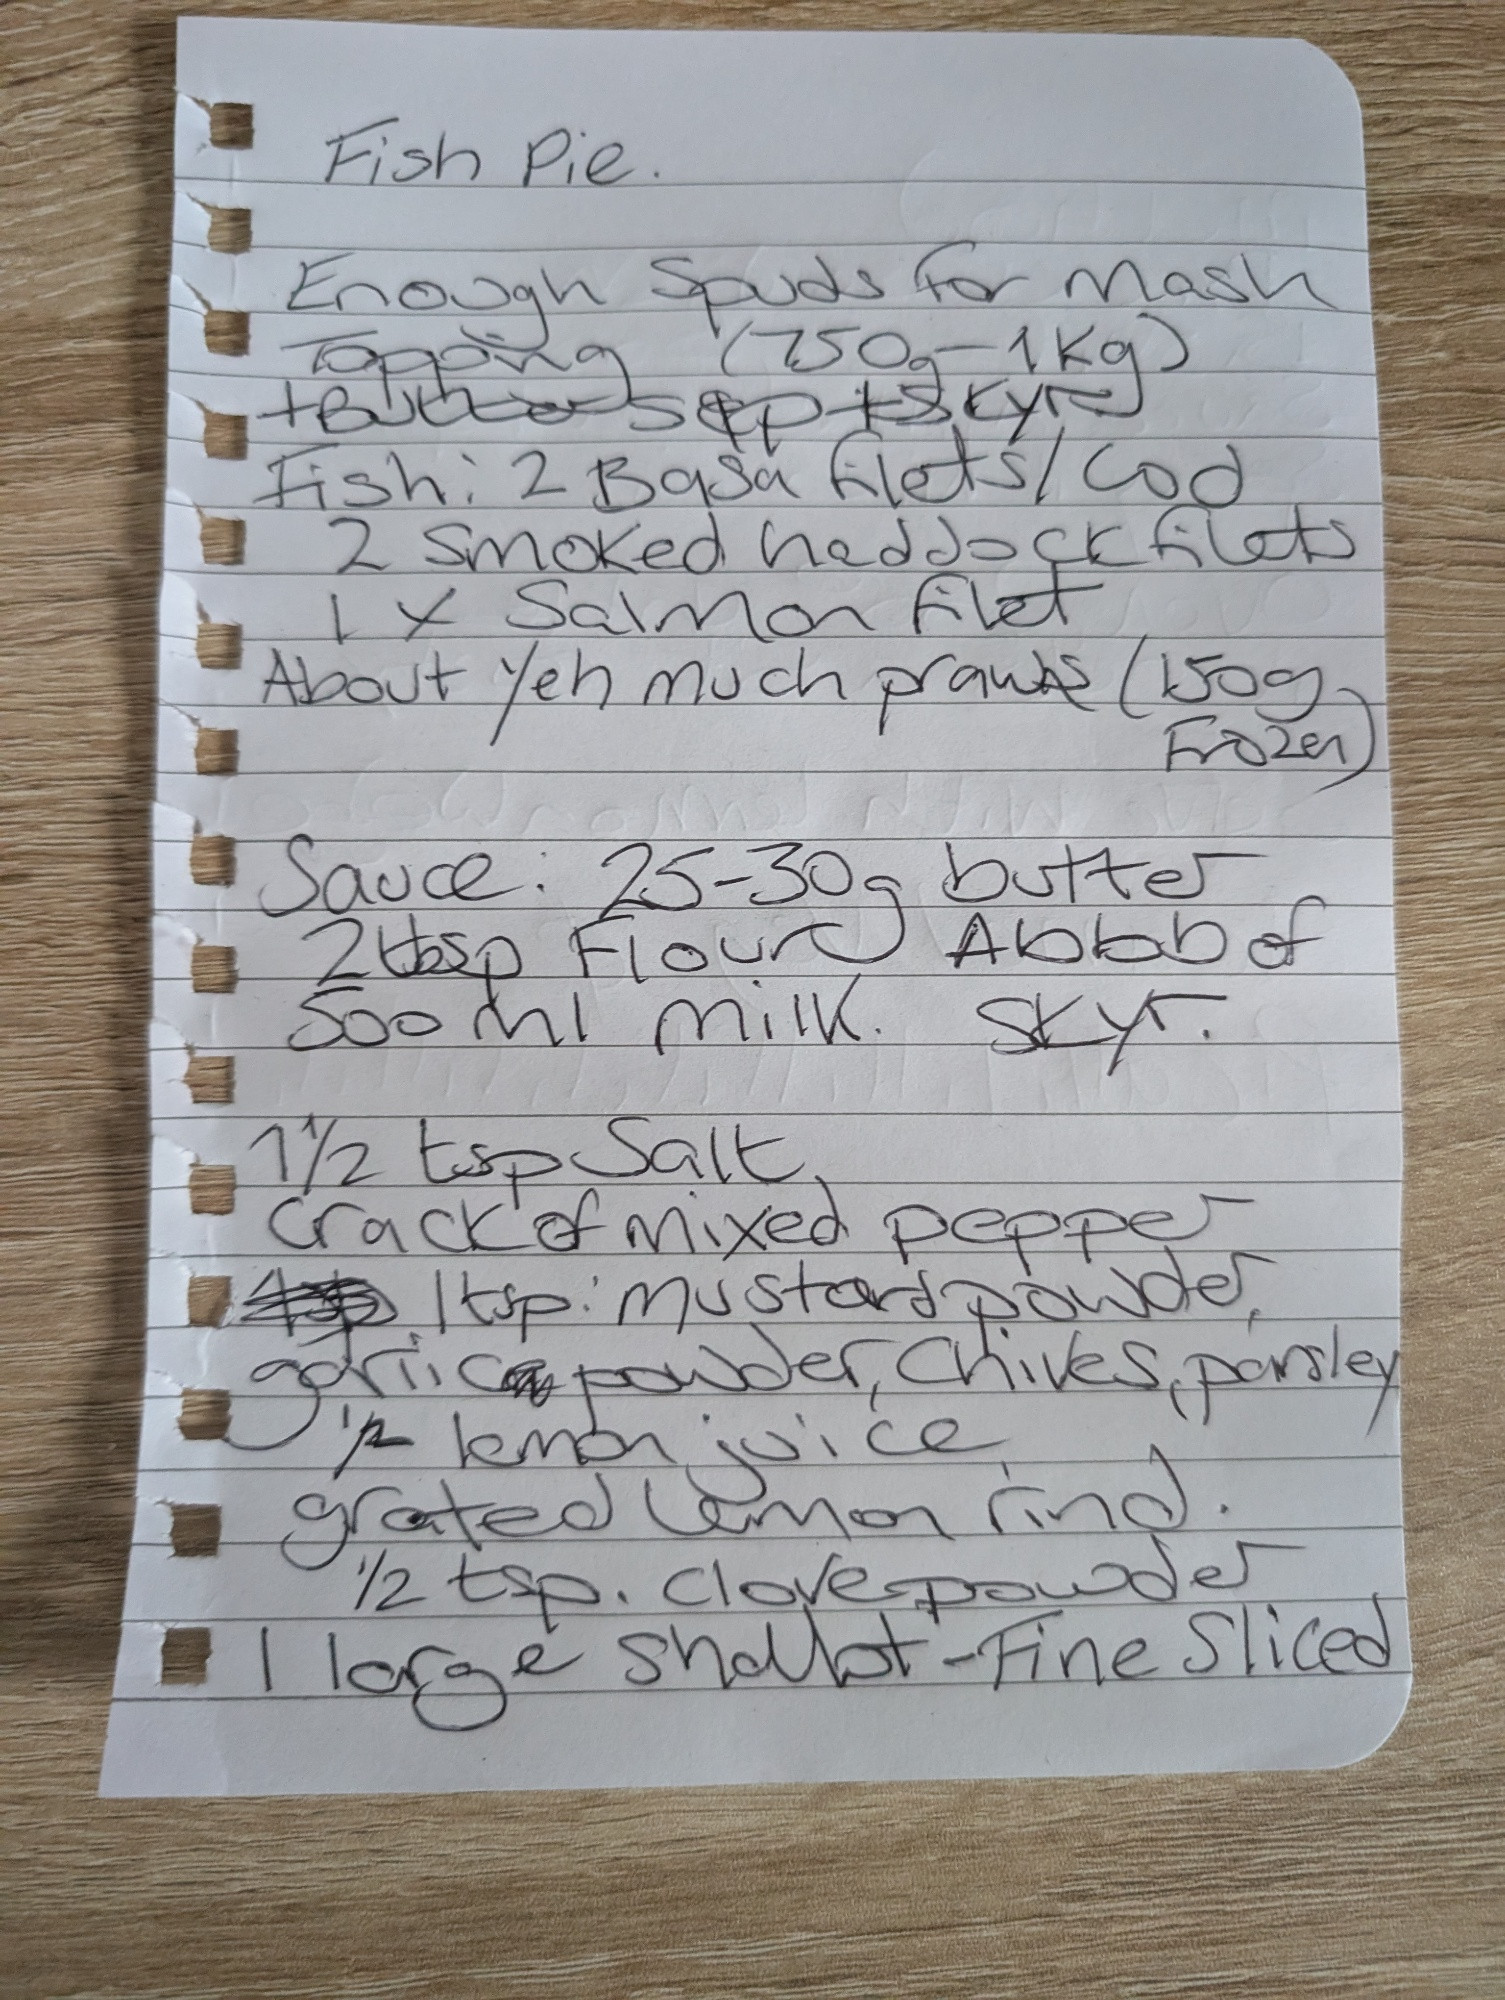 Fish Pie.
Enough Spuds for Mash
Topping (750g-1Kg)
+Butter s&p + Skyr
Fish: 2 Basa filets/Cod
2 Smoked haddock filets
1 x Salmon filet
About yeh much prawns (150g
Frozen)
Sauce: 25-30g butter
2tbsp Flour A blob of
500ml Milk. Skyr.
1 1/2 tsp Salt,
crack of mixed pepper
1tsp: mustard powder,
garlic powder, Chives, parsley
1/2 lemon juice,
grated lemon rind.
1/2 tsp. Clove powder
1 large Shallot - Fine Sliced